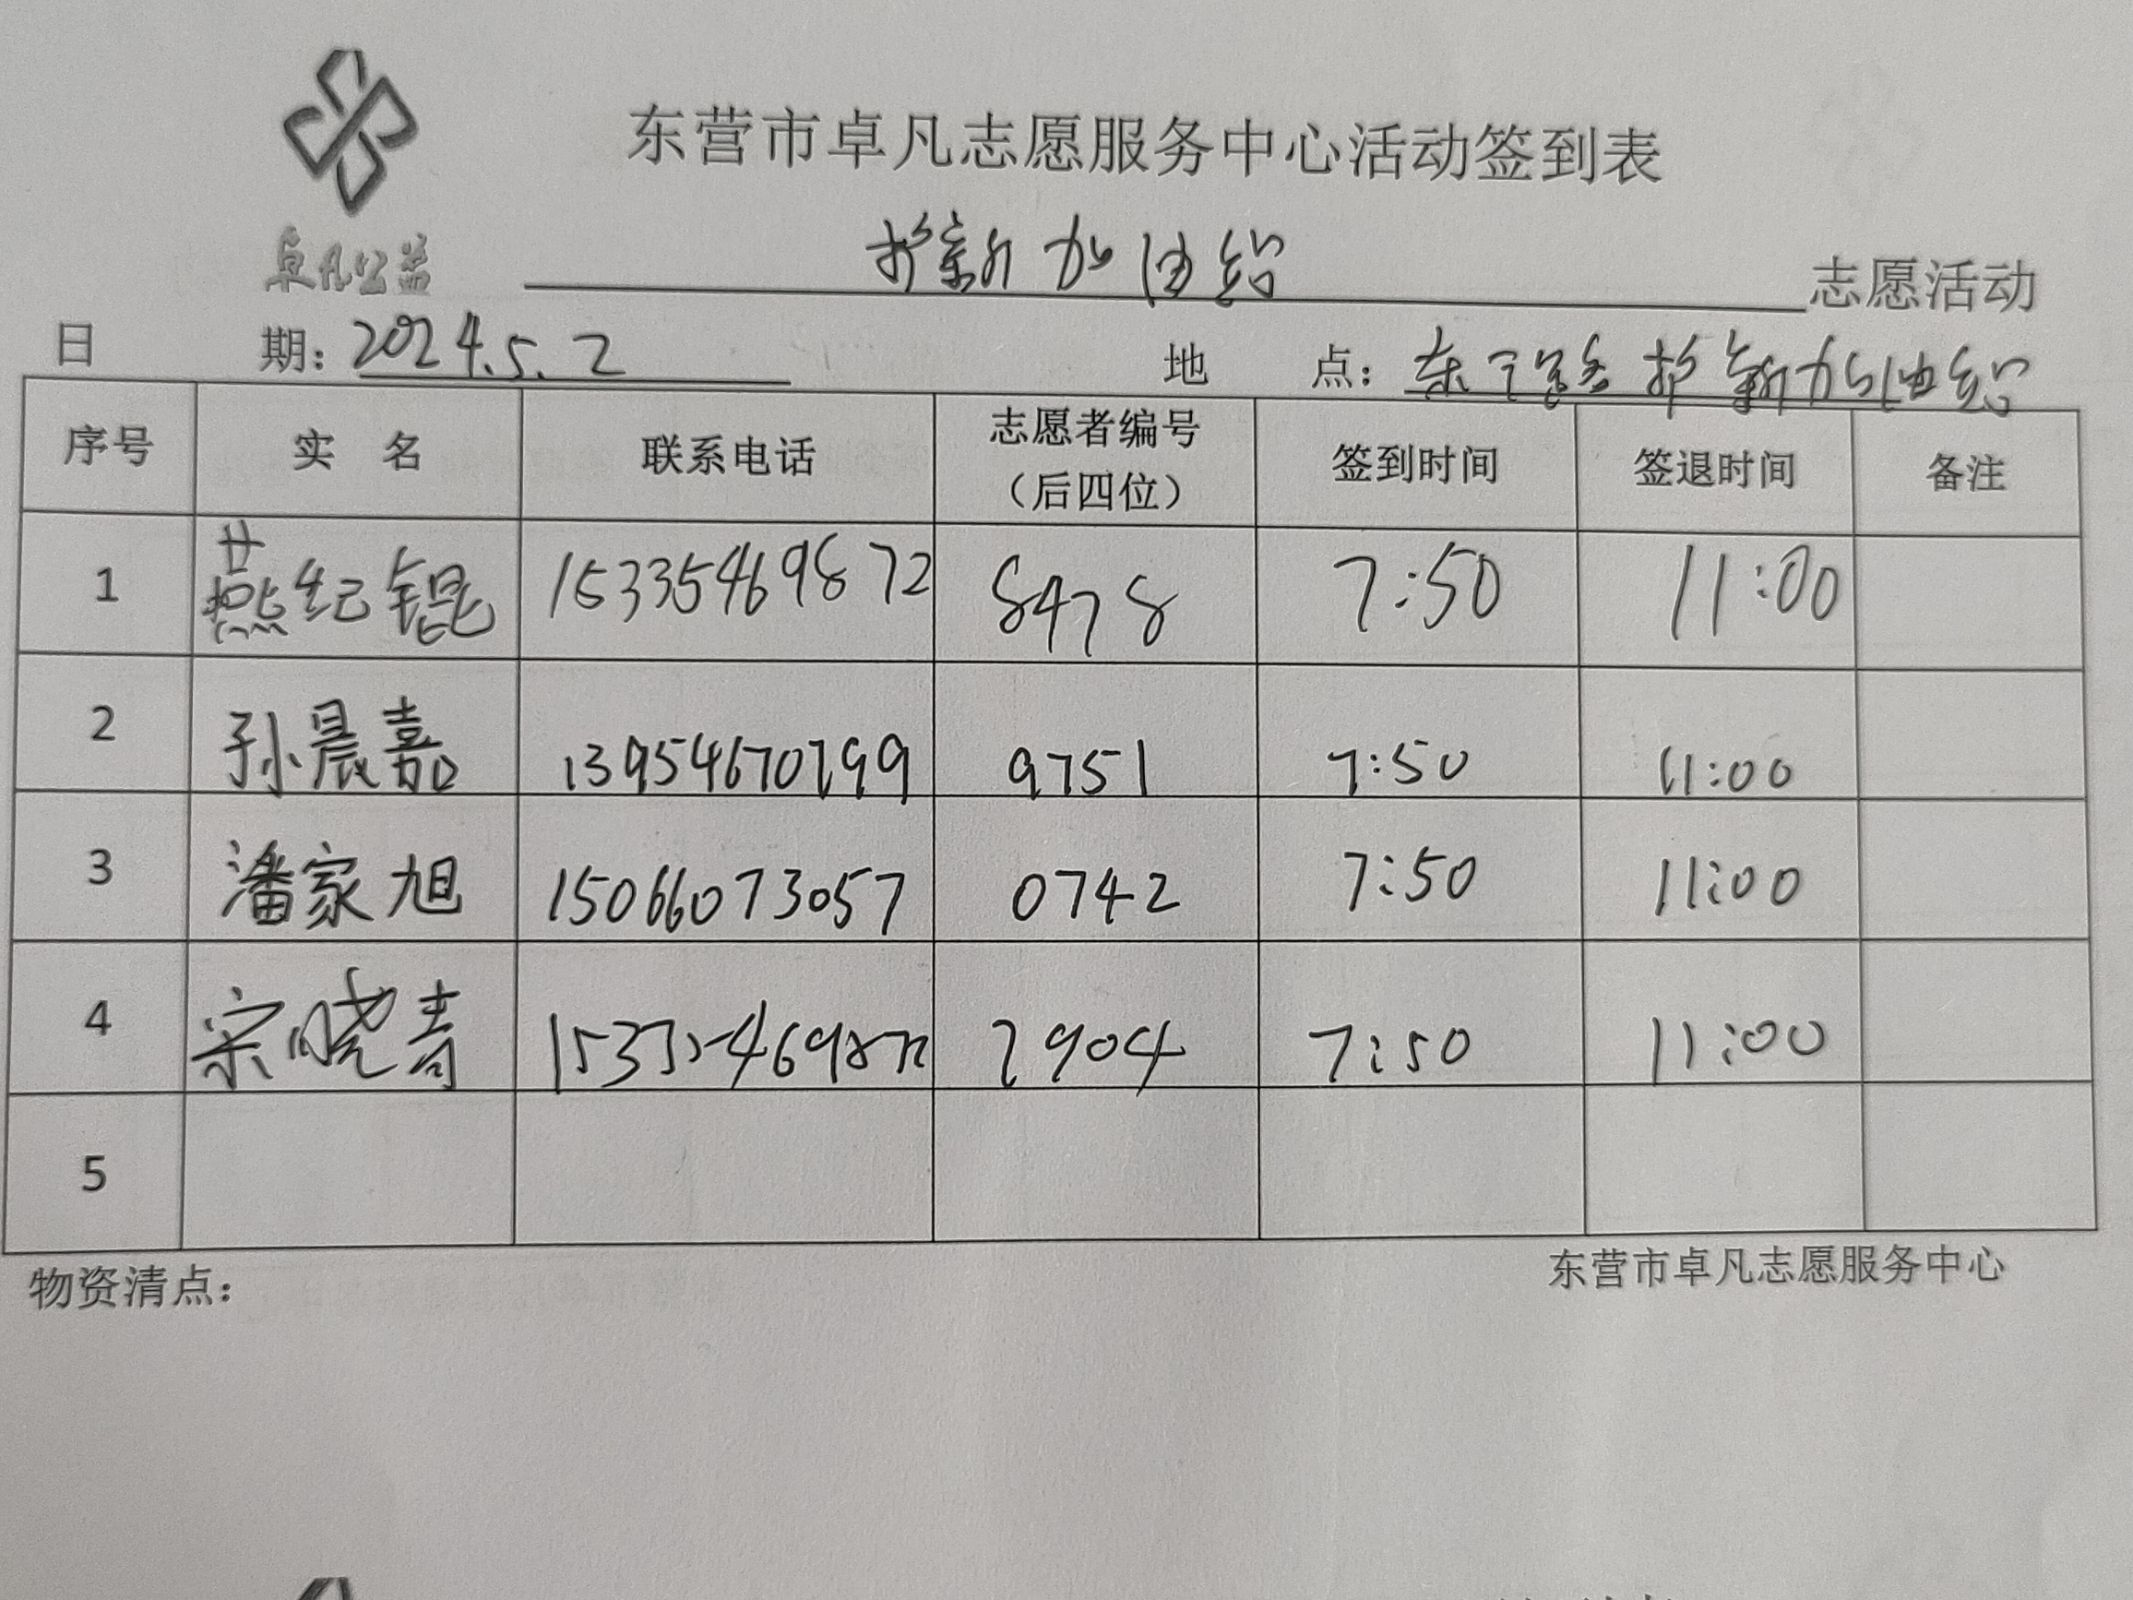 东营市卓凡志愿服务中心活动签到表
卓凡公益
护新加油站 志愿活动
日 期: 2024.5.2 地 点: 东 路护新加油站
序号 实 名 联系电话 志愿者编号（后四位） 签到时间 签退时间 备注
1 燕纪锟 15335469872 8478 7:50 11:00
2 孙晨嘉 13954670799 9751 7:50 11:00
3 潘家旭 15066073057 0742 7:50 11:00
4 宋晓青 15335469872 2904 7:50 11:00
5
物资清点: 东营市卓凡志愿服务中心